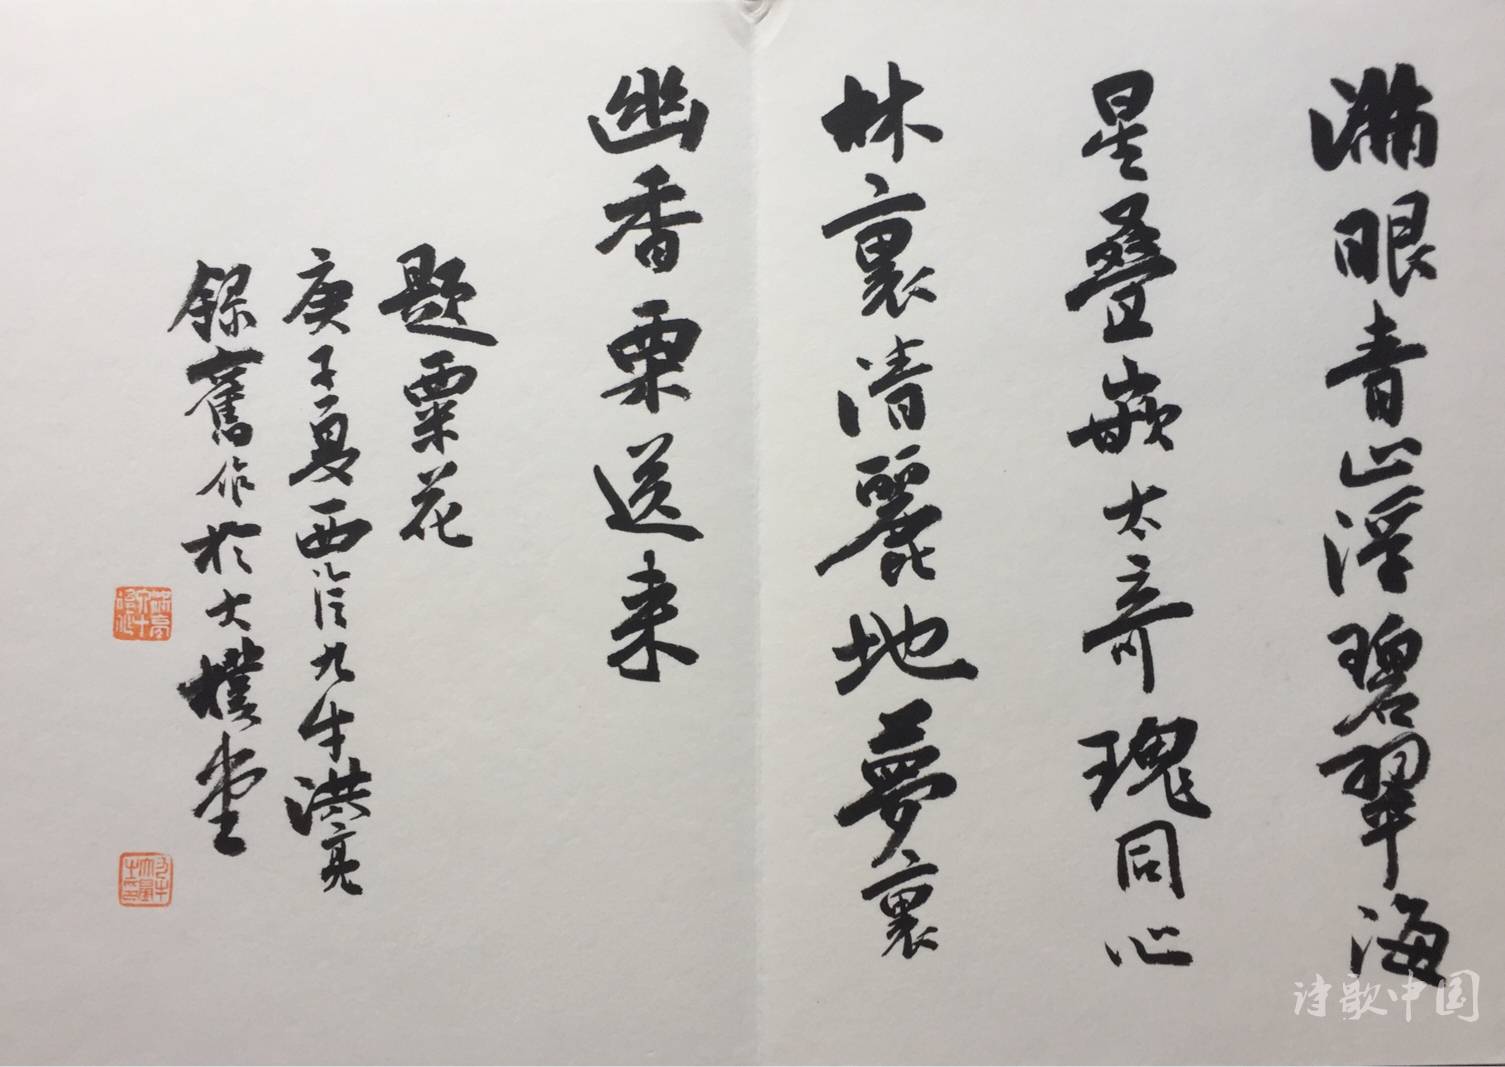 滿眼青山浮碧翠海
星疊嵌太奇瑰同心
林裏清麗地夢裏
幽香栗送来
題栗花
庚子夏西泠九牛洪亮
録舊作於大樸堂
诗歌中国